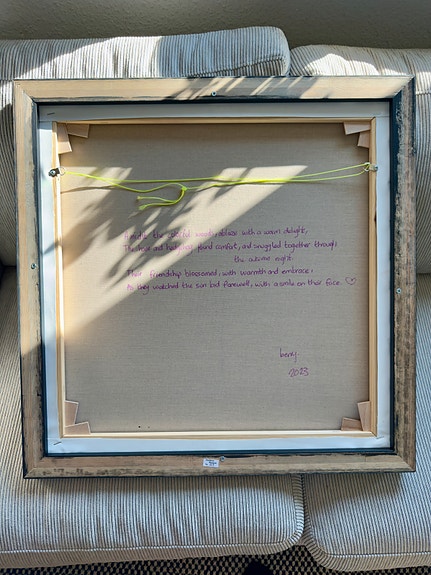 the woods, ablaze with a warm delight,
The and hedgehog found comfort, and snuggled together through
the autumn night.
Their friendship blossomed, with warmth and embrace,
As they watched the sun bid farewell, with a smile on their face.
2023